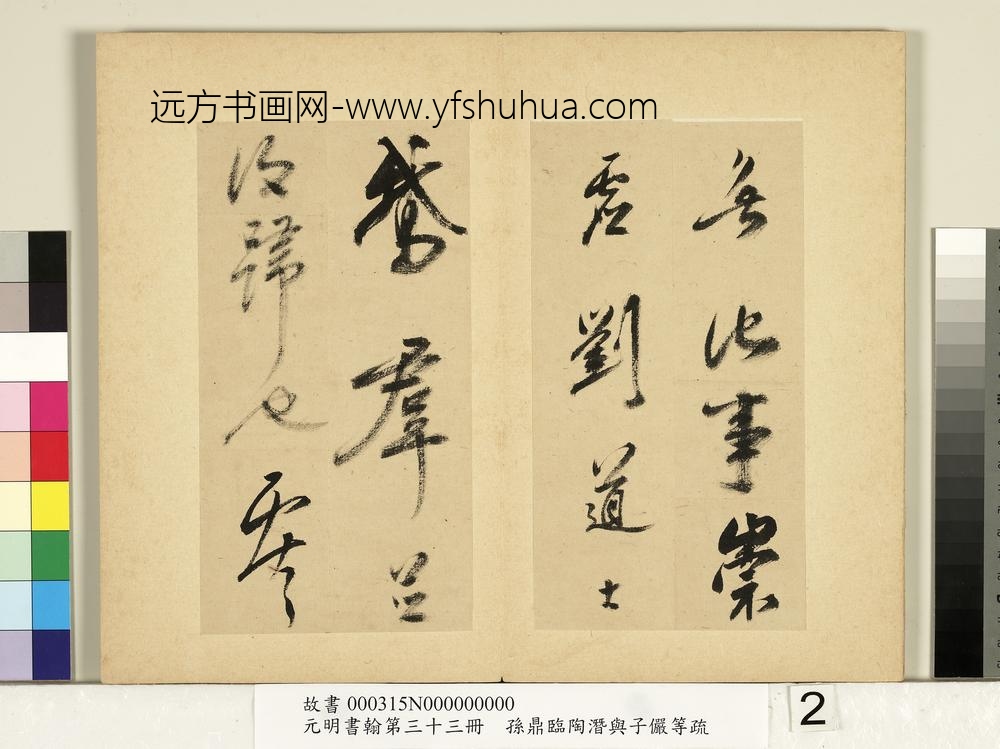 远方书画网-www.yfshuhua.com
無他事崇
虛劉道士
鵞羣並
復歸也獻
故書 000315N000000000
元明書翰第三十三冊　孫鼎臨陶潛與子儼等疏
2